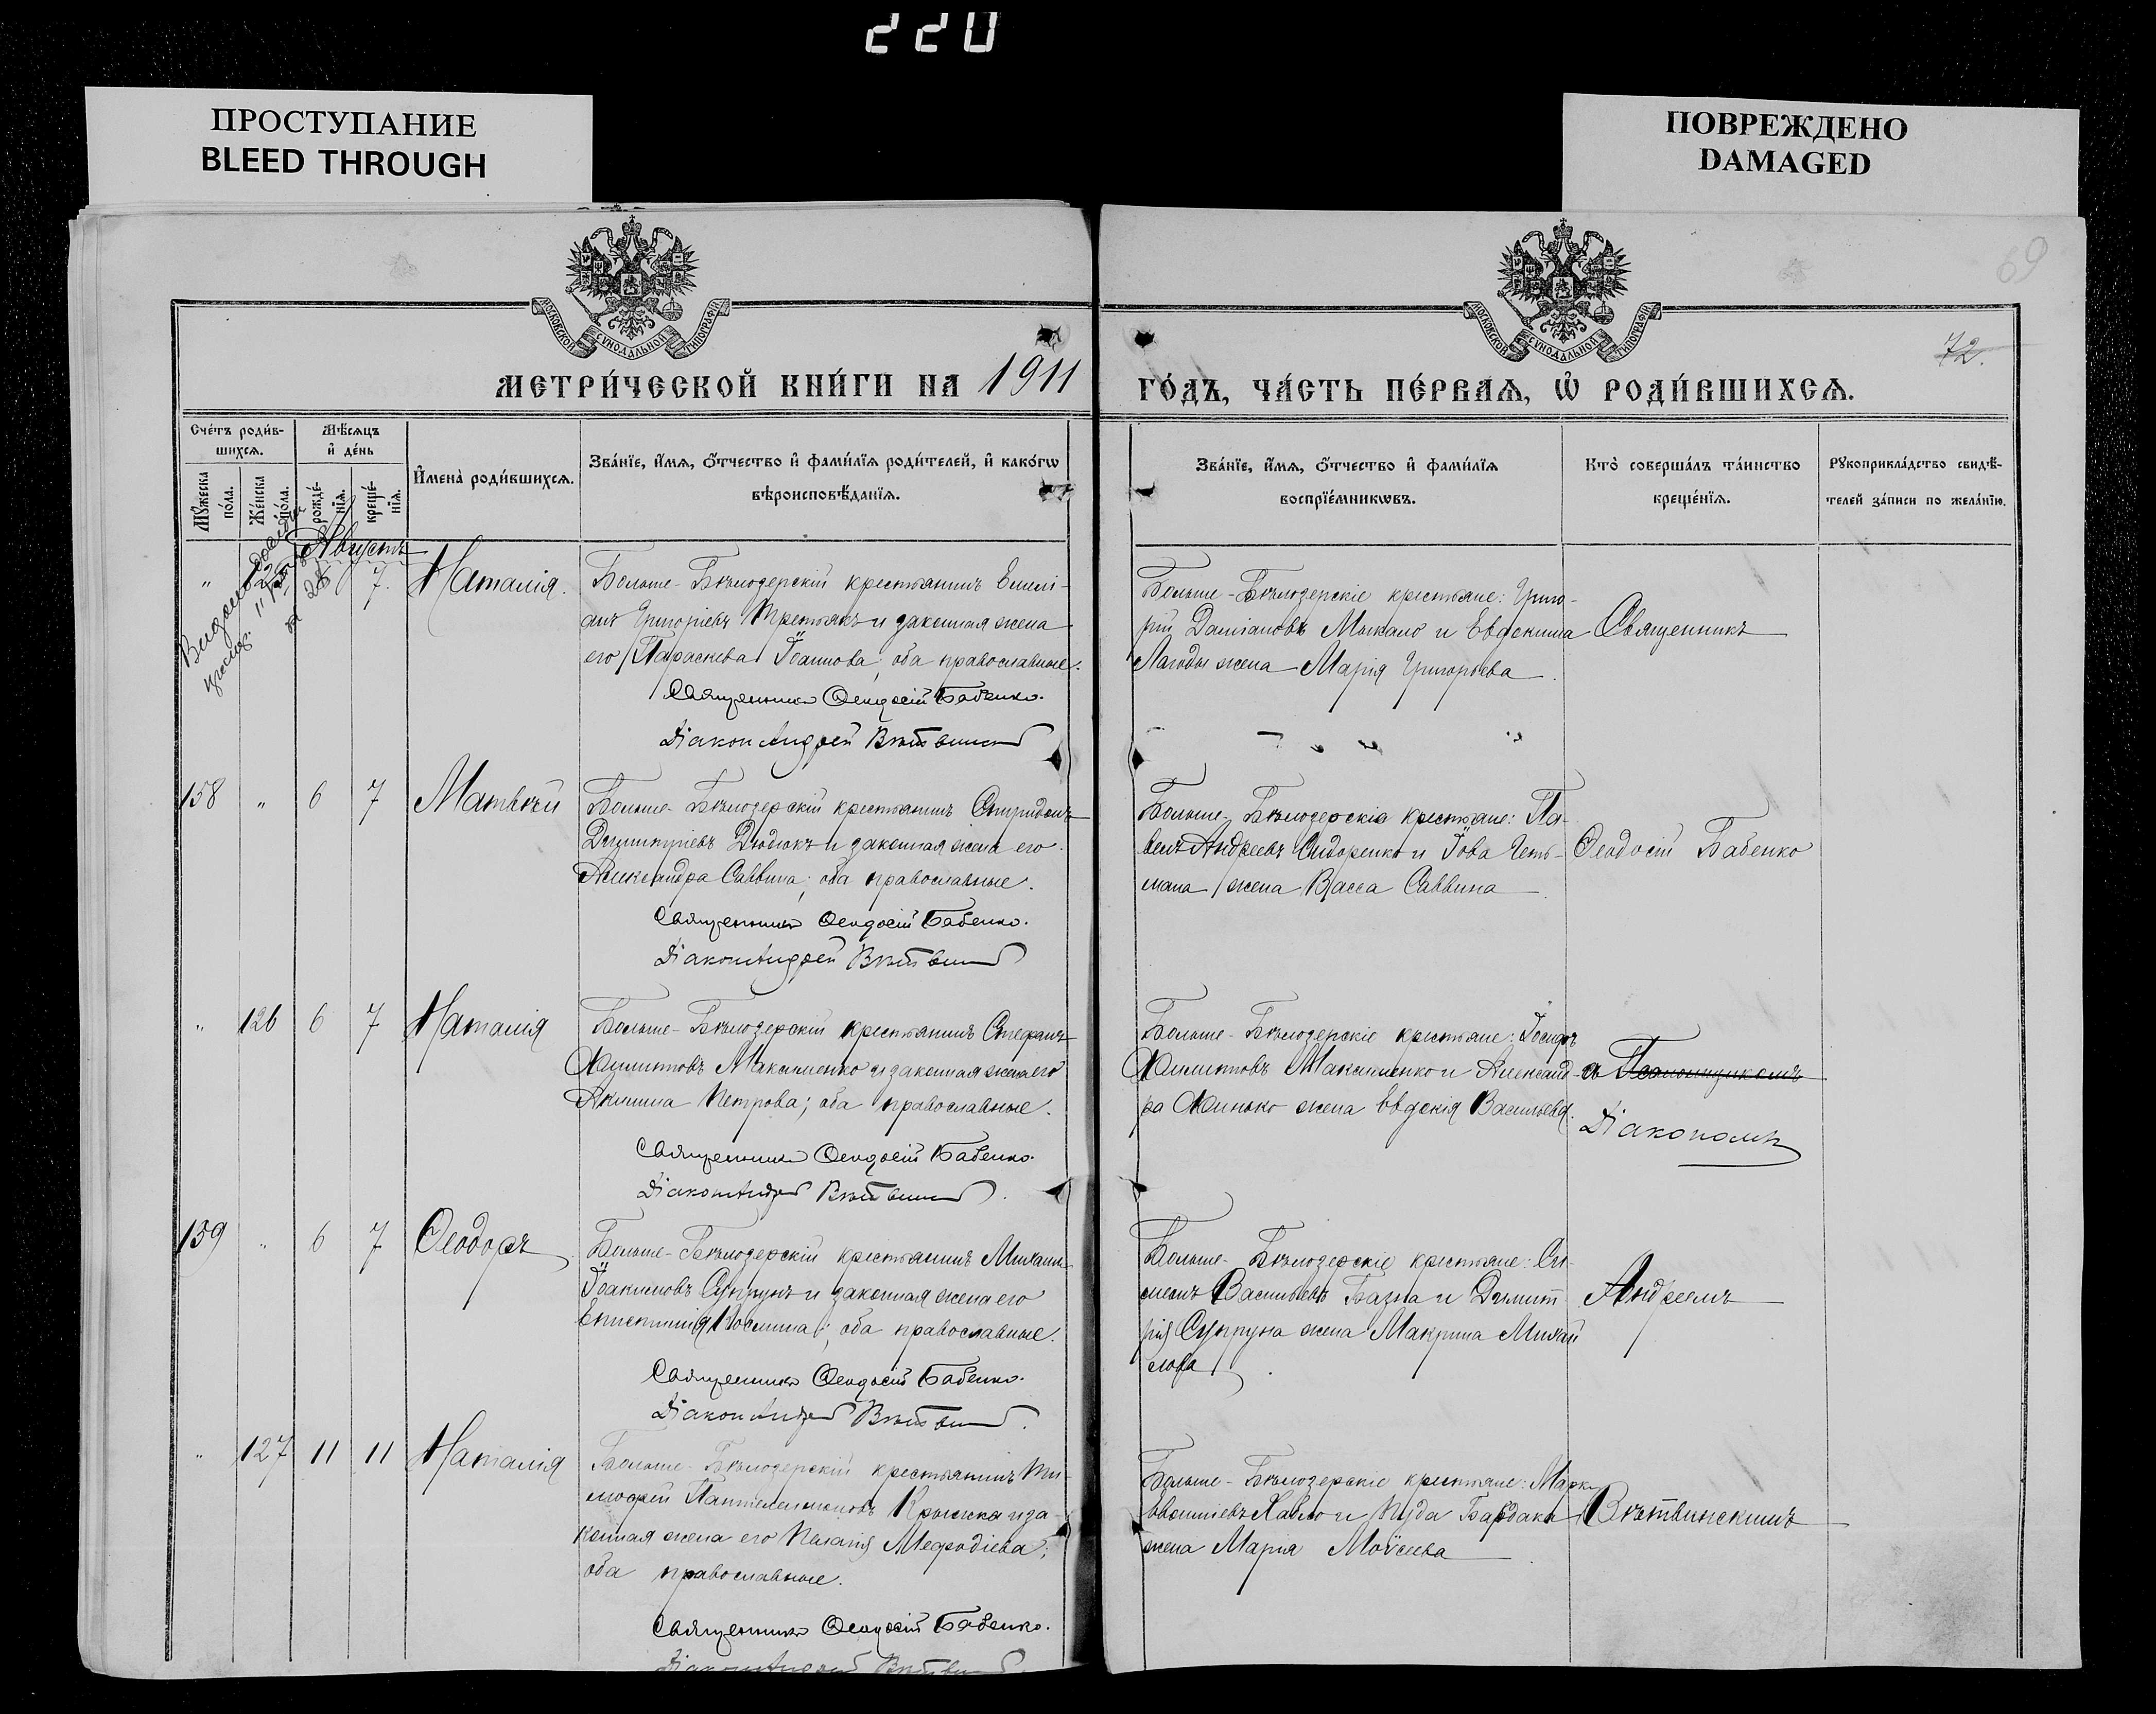 220
ПРОСТУПАНИЕ
BLEED THROUGH
ПОВРЕЖДЕНО
DAMAGED
69
72.
МОСКОВСКОЙ СѴНОДАЛЬНОЙ ТИПОГРАФІИ
МОСКОВСКОЙ СѴНОДАЛЬНОЙ ТИПОГРАФІИ
МЕТРИ́ЧЕСКОЙ КНИ́ГИ НА 1911
ГО́ДЪ, ЧА́СТЬ ПЕ́РВАѦ, Ѡ҆ РОДИ́ВШИХСѦ.
Сче́тъ роди́в-
шихсѧ.
Мѣ́сѧцъ
и҆ де́нь
Мꙋ́жеска
по́ла.
Же́нска
по́ла.
рожде́-
нїѧ.
креще́-
нїѧ.
И҆мена̀ роди́вшихсѧ.
Зва́нїе, и҆́мѧ, ѻ҆́тчество и҆ фами́лїѧ роди́телей, и҆ како́гѡ
вѣроисповѣ́данїѧ.
Зва́нїе, и҆́мѧ, ѻ҆́тчество и҆ фами́лїѧ
воспрїе́мникѡвъ.
Кто̀ соверша́лъ та́инство
креще́нїѧ.
Рꙋкоприкла́дство свидѣ́-
телей за́писи по жела́нїю.
Августъ
" 125 7. Наталія.
Больше-Бѣлозерскій крестьянинъ Емелі-
анъ Григоріевъ Третьякъ и законная жена
его Параскева Іоаннова; оба православные.
Священникъ Ѳеодосій Бабенко.
Діаконъ Андрей Вѣтвинскій
Больше-Бѣлозерскіе крестьяне: Григо-
рій Даміановъ и Евгенія
жена Марія Григорьева
Священникъ
158 " 6 7 Матвѣй
Больше-Бѣлозерскій крестьянинъ Спиридонъ
Димитріевъ Дюдюкъ и законная жена его
Александра Саввина; оба православные.
Священникъ Ѳеодосій Бабенко.
Діаконъ Андрей Вѣтвинскій
Больше-Бѣлозерскіе крестьяне: Па-
велъ Андреевъ Сидоренко и Іова Геть-
мана жена Васса Саввина
Ѳеодосій Бабенко
" 126 6 7 Наталія
Больше-Бѣлозерскій крестьянинъ Стефанъ
Филиповъ Максименко и законная жена его
Акилина Петрова; оба православные.
Священникъ Ѳеодосій Бабенко.
Діаконъ Андрей Вѣтвинскій.
Больше-Бѣлозерскіе крестьяне: Іосифъ
Филиповъ Максименко и Александ-
ра Финько жена Евдокія Васильева.
съ Псаломщикомъ
Діакономъ
159 " 6 7 Ѳеодоръ
Больше-Бѣлозерскій крестьянинъ Михаилъ
Іоакимовъ Супрунъ и законная жена его
Епистимія Космина; оба православные.
Священникъ Ѳеодосій Бабенко.
Діаконъ Андрей Вѣтвинскій.
Больше-Бѣлозерскіе крестьяне: Си-
меонъ Васильевъ Базна и Димит-
рія Супруна жена Макрина Михай
лова
Андреемъ
" 127 11 11 Наталія
Больше-Бѣлозерскій крестьянинъ Ти-
мофей Пантелеимоновъ Крышка и за-
конная жена его Пелагія Меѳодіева;
оба православные.
Священникъ Ѳеодосій Бабенко.
Діаконъ Андрей Вѣтвинскій
Больше-Бѣлозерскіе крестьяне: Маркъ
Хавло и Іуда Бардака
жена Марія Моѵсеева
Вѣтвинскимъ